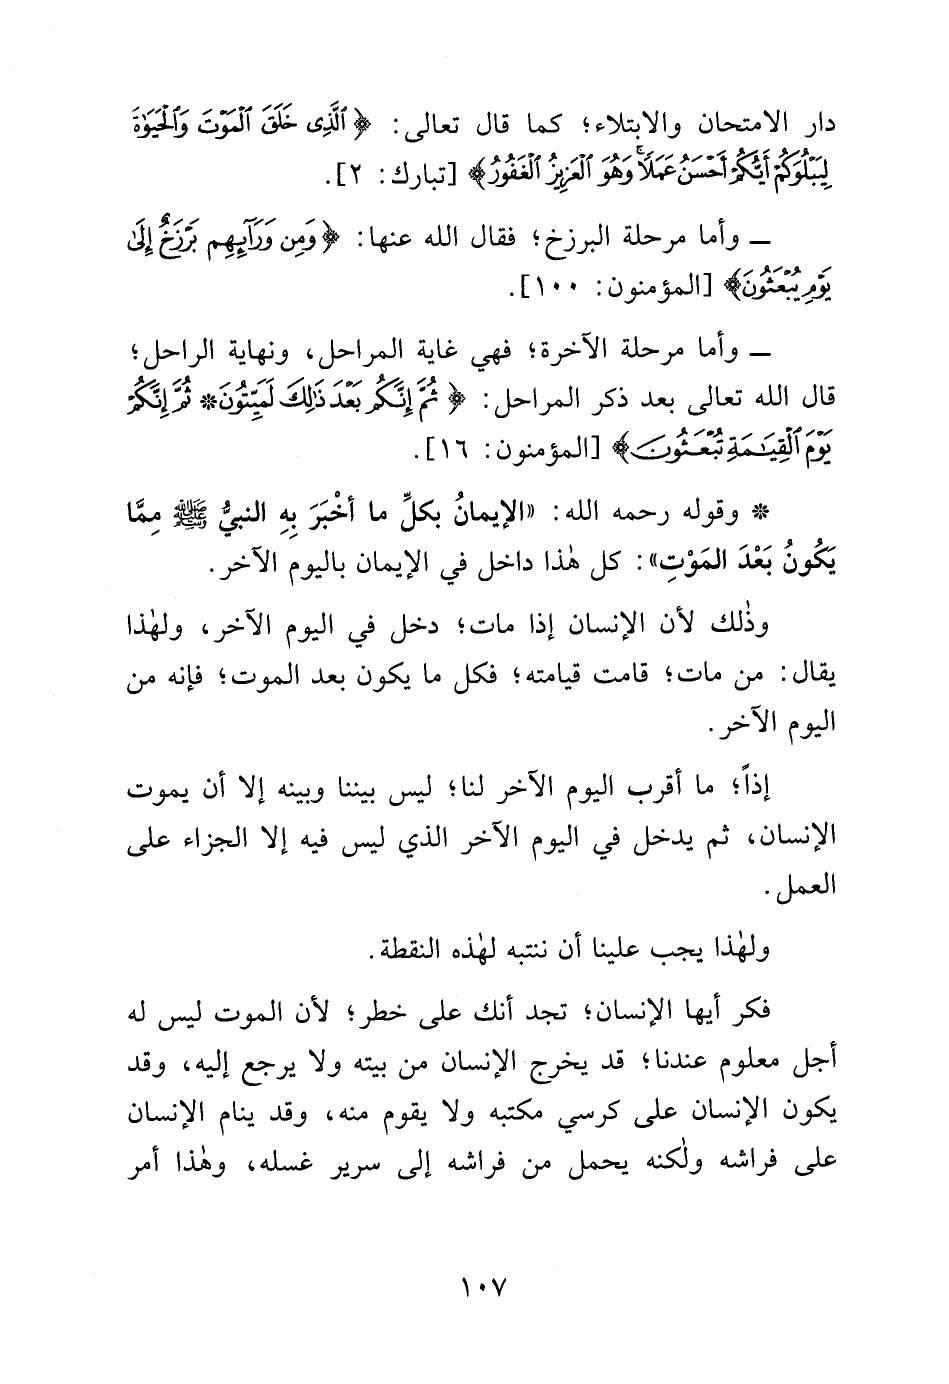 دار الامتحان والابتلاء؛ كما قال تعالى: ﴿ٱلَّذِى خَلَقَ ٱلْمَوْتَ وَٱلْحَيَوٰةَ
لِيَبْلُوَكُمْ أَيُّكُمْ أَحْسَنُ عَمَلًا ۚ وَهُوَ ٱلْعَزِيزُ ٱلْغَفُورُ﴾ [تبارك: ٢].
ـ وأما مرحلة البرزخ؛ فقال الله عنها: ﴿وَمِن وَرَآئِهِم بَرْزَخٌ إِلَىٰ
يَوْمِ يُبْعَثُونَ﴾ [المؤمنون: ١٠٠].
ـ وأما مرحلة الآخرة؛ فهي غاية المراحل، ونهاية الراحل؛
قال الله تعالى بعد ذكر المراحل: ﴿ثُمَّ إِنَّكُم بَعْدَ ذَٰلِكَ لَمَيِّتُونَ * ثُمَّ إِنَّكُمْ
يَوْمَ ٱلْقِيَـٰمَةِ تُبْعَثُونَ﴾ [المؤمنون: ١٦].
* وقوله رحمه الله: «الإيمانُ بكلِّ ما أخْبَرَ بِهِ النبيُّ ﷺ مِمَّا
يَكُونُ بَعْدَ المَوْتِ»: كل هٰذا داخل في الإيمان باليوم الآخر.
وذٰلك لأن الإنسان إذا مات؛ دخل في اليوم الآخر، ولهٰذا
يقال: من مات؛ قامت قيامته؛ فكل ما يكون بعد الموت؛ فإنه من
اليوم الآخر.
إذاً؛ ما أقرب اليوم الآخر لنا؛ ليس بيننا وبينه إلا أن يموت
الإنسان، ثم يدخل في اليوم الآخر الذي ليس فيه إلا الجزاء على
العمل.
ولهٰذا يجب علينا أن ننتبه لهٰذه النقطة.
فكر أيها الإنسان؛ تجد أنك على خطر؛ لأن الموت ليس له
أجل معلوم عندنا؛ قد يخرج الإنسان من بيته ولا يرجع إليه، وقد
يكون الإنسان على كرسي مكتبه ولا يقوم منه، وقد ينام الإنسان
على فراشه ولٰكنه يحمل من فراشه إلى سرير غسله، وهٰذا أمر
١٠٧